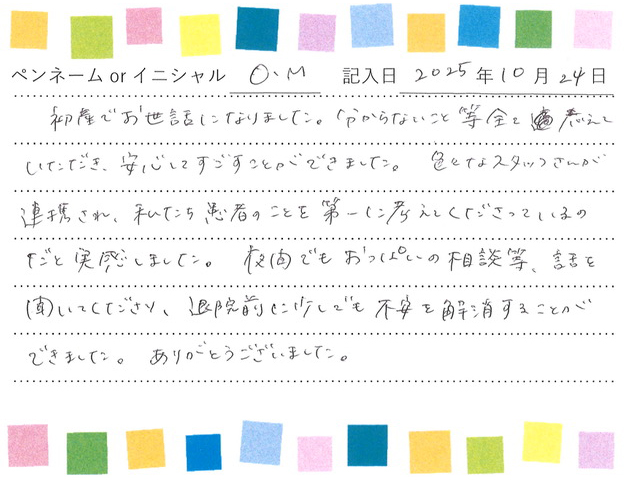 ペンネーム or イニシャル O.M 記入日 2025年10月24日
初産でお世話になりました。分からないこと等全て教えて
いただき、安心してすごすことができました。 色々なスタッフさんが
連携され、私たち患者のことを第一に考えてくださっているの
だと実感しました。 夜間でもおっぱいの相談等、話を
聞いてくださり、退院前に少しでも不安を解消することが
できました。 ありがとうございました。